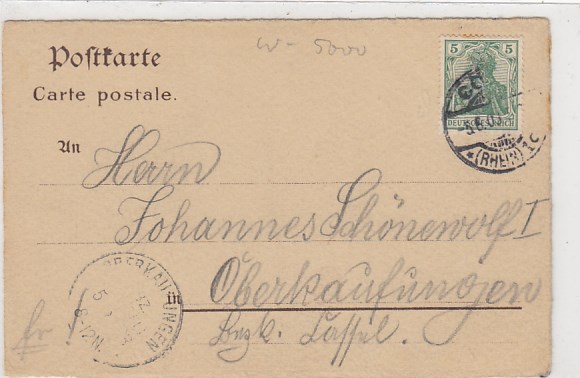 w- 5000
Postkarte
Carte postale.
5 5
DEUTSCHES REICH
(RHEIN) 1
An
Herrn
Johannes Schönewolf I
in Oberkaufungen
Bezk. Cassel.
fr.
OBERKAUFUNGEN